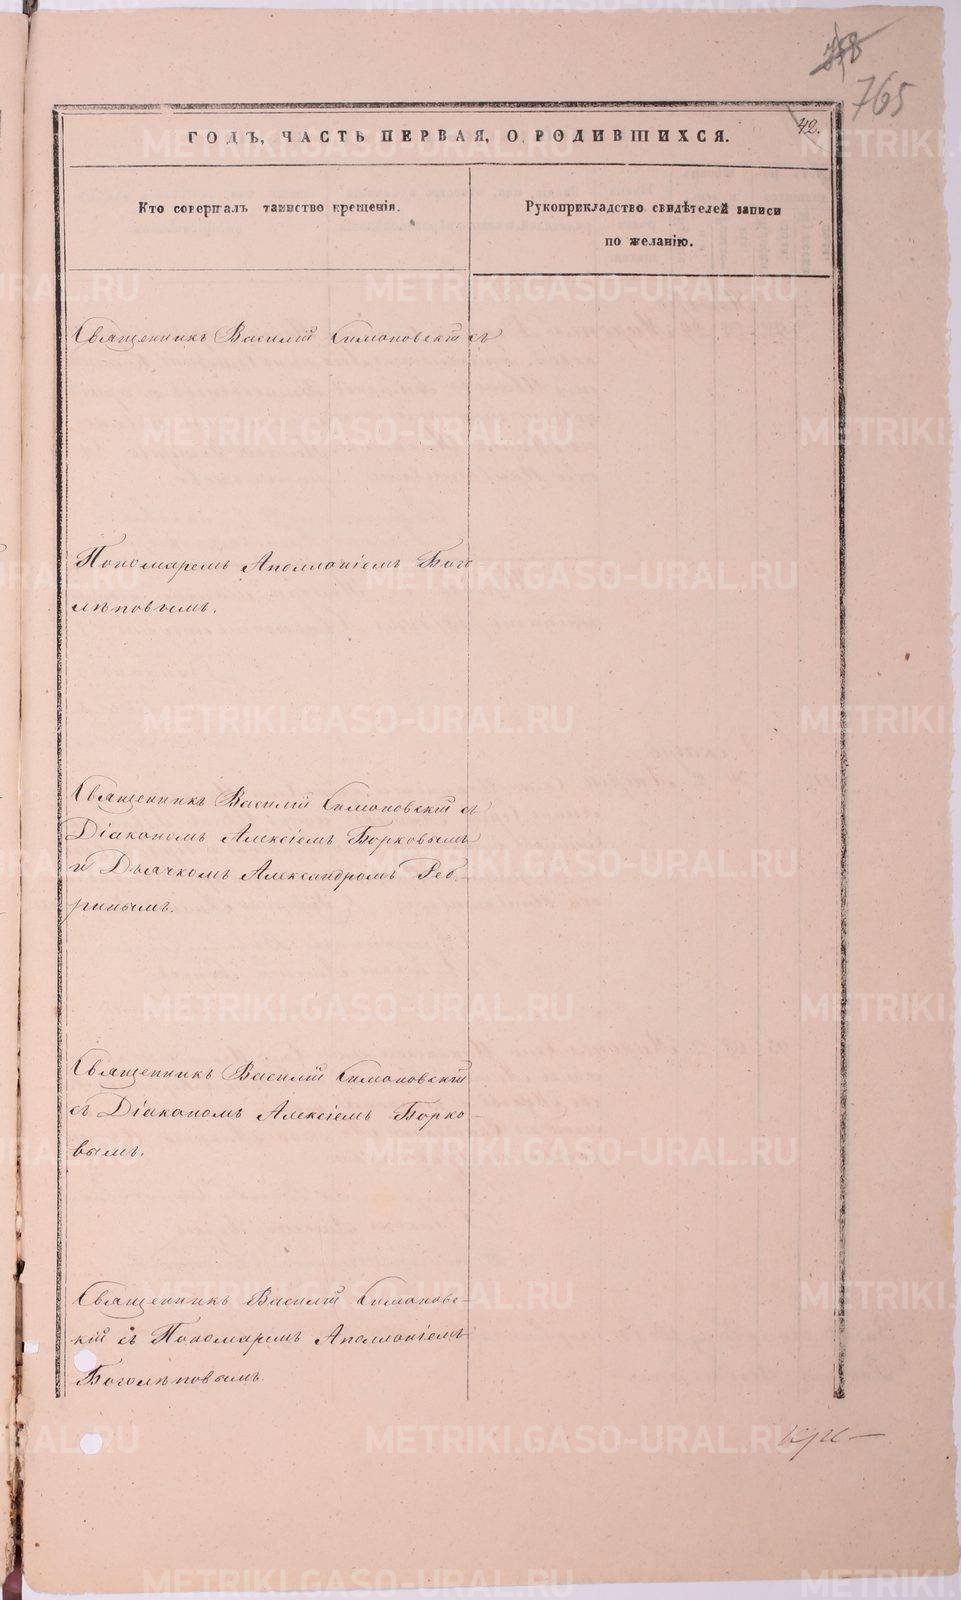 765
42.
ГОДЪ, ЧАСТЬ ПЕРВАЯ, О РОДИВШИХСЯ.
Кто совершалъ таинство крещенія.
Рукоприкладство свидѣтелей записи
по желанію.
Священникъ Василій Симановскій съ
Пономаремъ Аполлоніемъ Бого
лѣповымъ.
Священникъ Василій Симановскій съ
Діакономъ Алексіемъ Борковымъ
и Дьячкомъ Александромъ Реб-
ринымъ.
Священникъ Василій Симановскій
съ Діакономъ Алексіемъ Борко-
вымъ.
Священникъ Василій Симановс-
кій съ Пономаремъ Аполлоніемъ
Боголѣповымъ.
METRIKI.GASO-URAL.RU